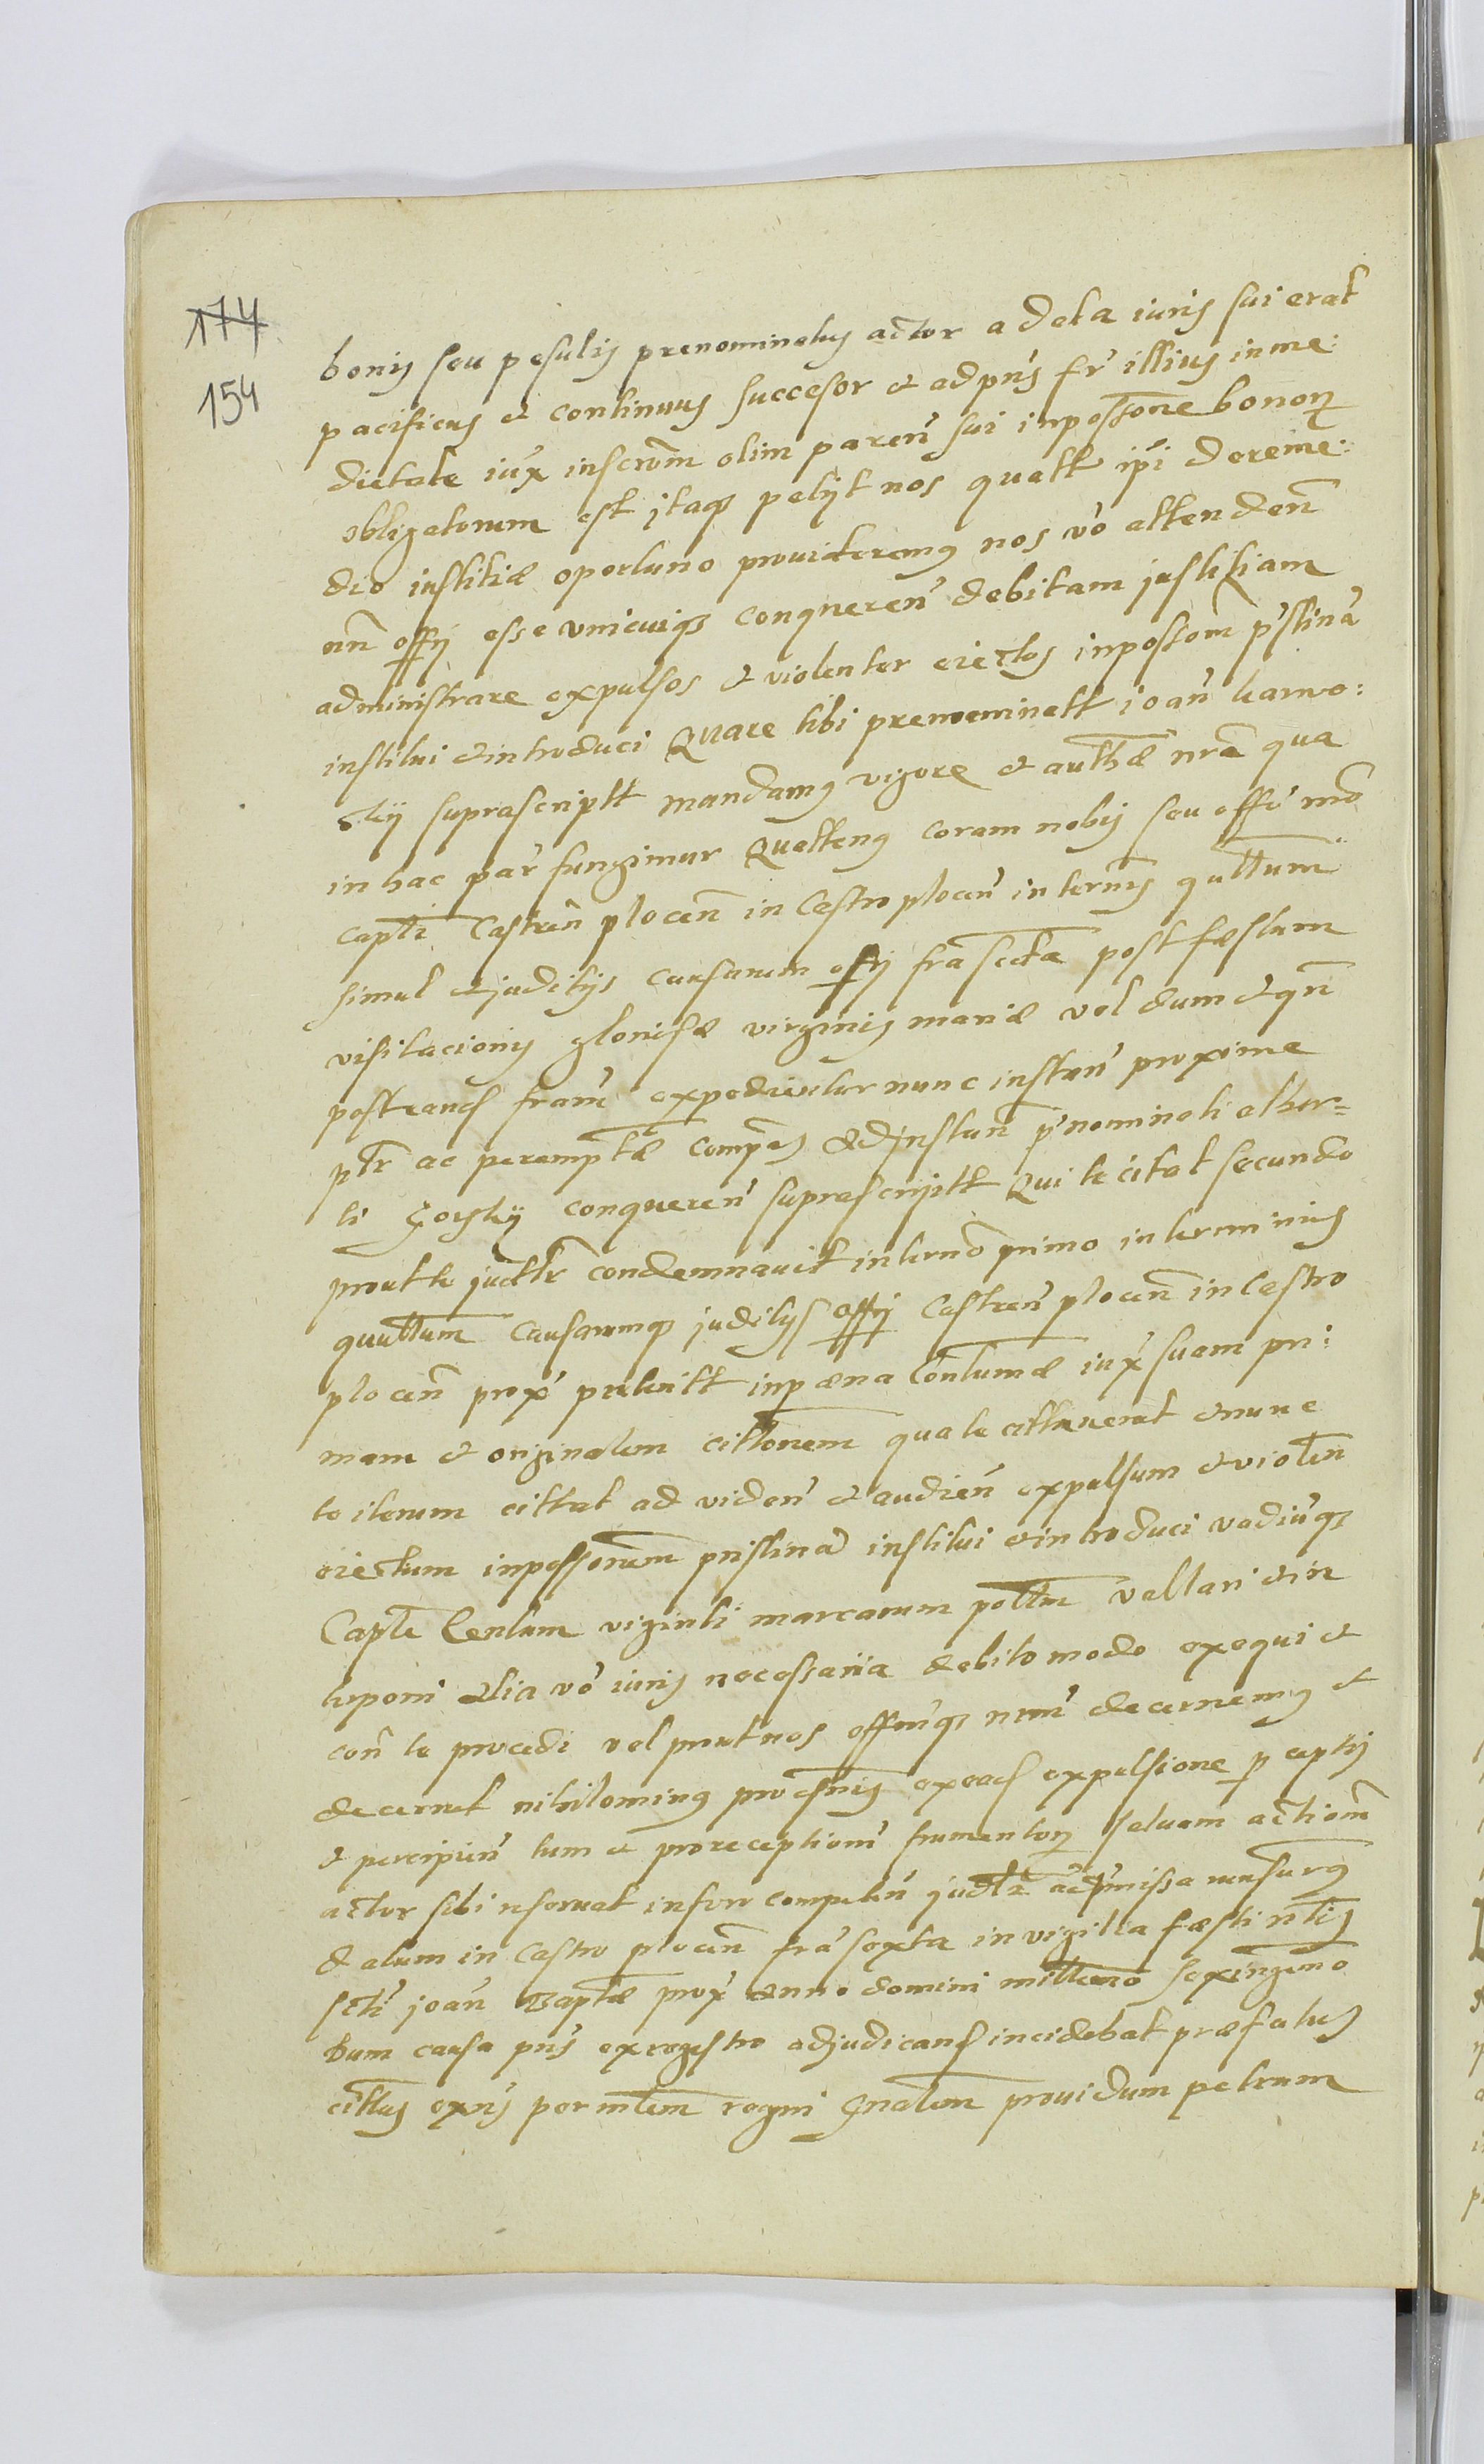 174
154
bonis seu pesulis prenominatus actor a deta iuris sui erat
pacificus et continuus succesor et ad pns fr illius in me:
dietate iux inscrom olim paren sui in possone bonor
obligatorum est itaq petyt nos quatt ipi de reme:
dio iustitiæ oportuno prouideremus nos vo attenden
nri offy esse vnicuiq conqueren debitam justitiam
administrare expulsos et violenter eiectos in possom pstina
institui et introduci Quare tibi prenominatt ioan karwo:
skij suprascriptt mandamus vigore et authæ nra qua
in hac par fungimur Quattenus coram nobis seu offo nro
capti Castren plocen in Castro plocen in ternis quttum
simul et juditijs causarum offy fra secda post fæstum
visitacionis glorisæ virginis mariæ vel dum et qn
post eand fram expedientur nunc instan proxime
ptr ac peremptæ compas ad Instan pnominati alber=
ti gorskij conqueren suprascriptt Qui te citat secundo
prout te juctlr condemnauit in terno primo in terminis
quttum causarumq juditys offy Castren plocen in Castro
plocen prox preteritt in pæna Contumæ iux suam pri:
mam et originalem cittonem qua te cittauerat et nunc
te iterum cittat ad viden et audien expulsum et violen
eiectum in possonem pristina institui et introduci vadiuq
Capte Centum viginti marcarum polln vallari et in
terponi alia vo iuris necessaria debito modo exequi et
con te procedi vel prout nos offmq nrm decernemus et
decernet nihilominus pro dnis ex ead expulsione pceptis
et percipien tum et pro receptiom frumentor saluam actiom
actor sibi reseruat in foro competen judtr admissa rensurus
datum in Castro plocen fra sexta in vigilia fæsti ntis
scti joan Baptæ prox anno domini millemo sexingmo
Dum causa pns ex regestro adjudicand incidebat præfatus
cittus exns per mtem regni gnalem prouidum petrum